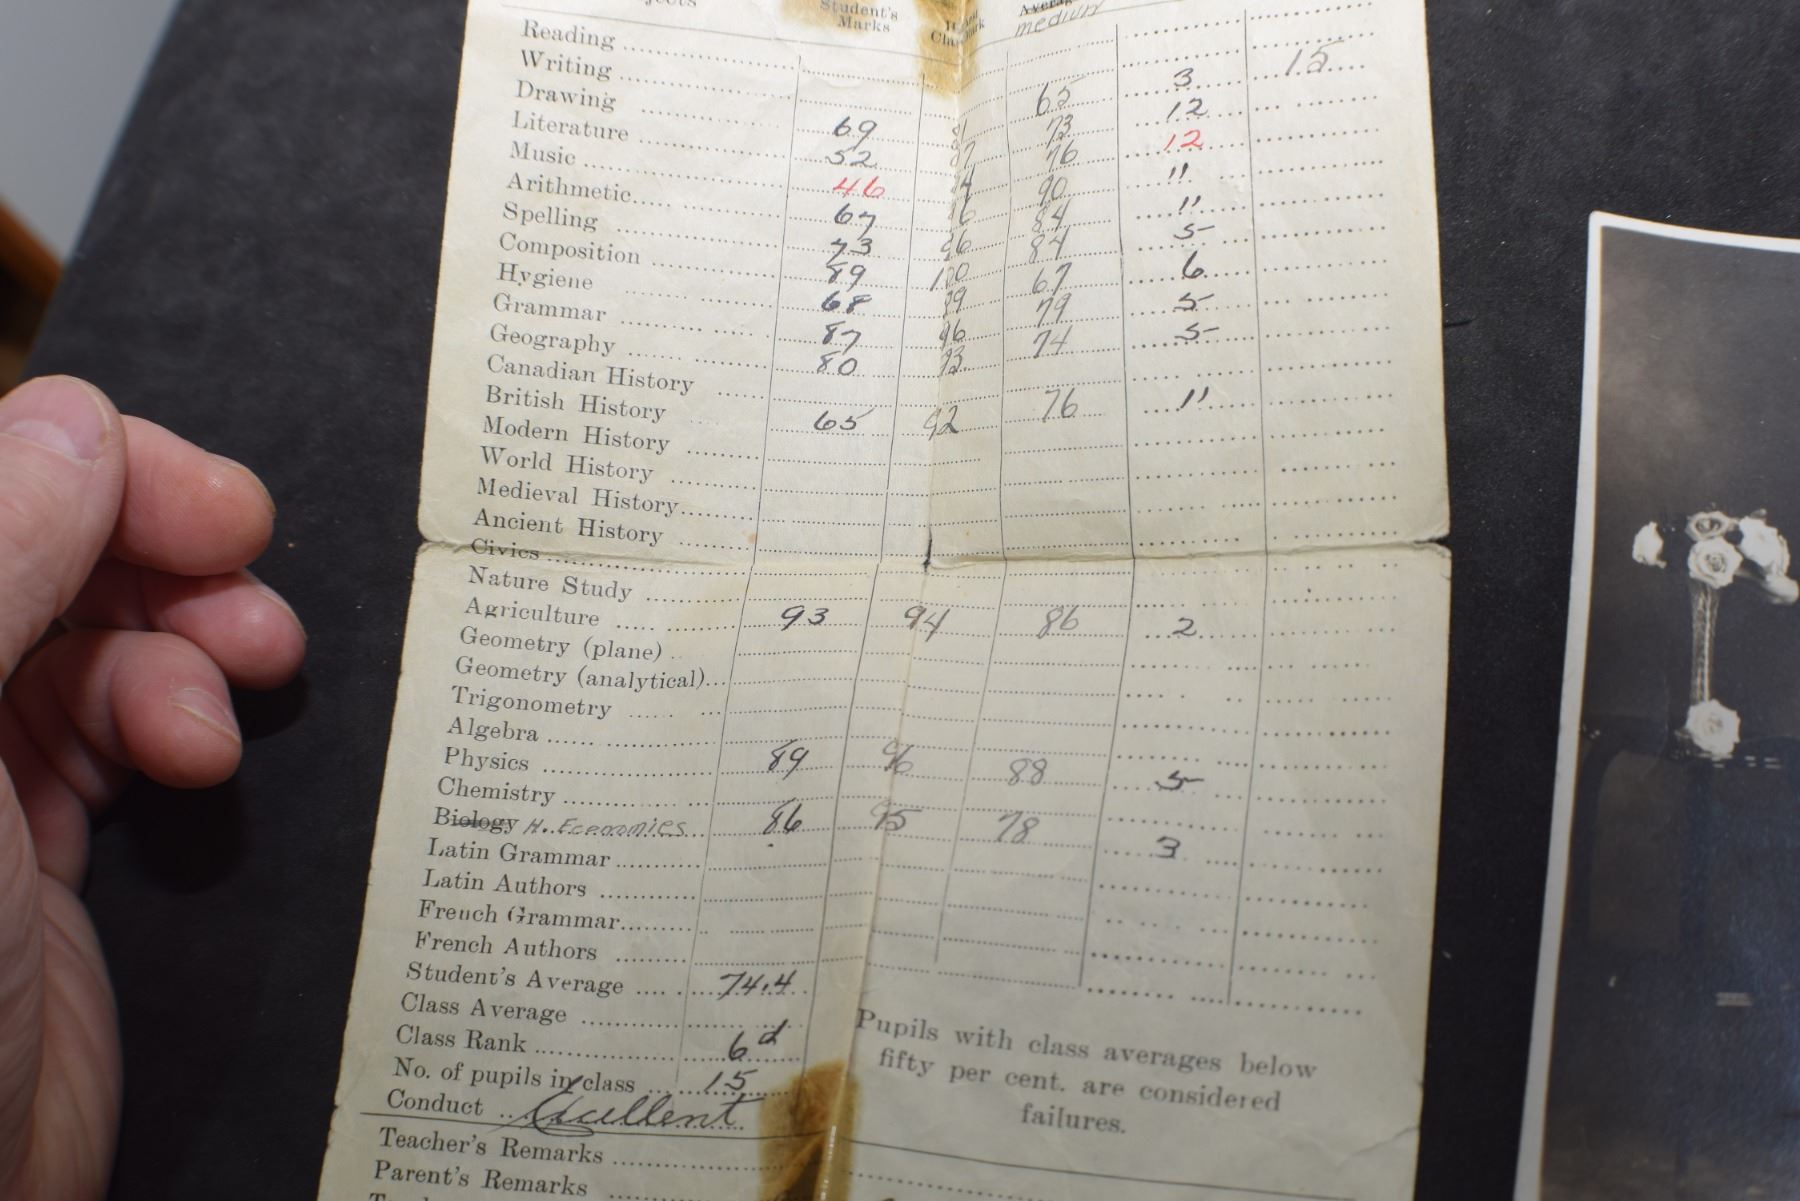 Student's Marks
Class Mark
medium
Reading
Writing 15
Drawing 69 65 3
Literature 52 73 12
Music 46 76 12
Arithmetic 67 90 11
Spelling 73 96 84 11
Composition 89 100 84 5
Hygiene 68 99 67 6
Grammar 87 96 79 5
Geography 80 93 74 5
Canadian History
British History 65 92 76 11
Modern History
World History
Medieval History
Ancient History
Civics
Nature Study
Agriculture 93 94 86 2
Geometry (plane)
Geometry (analytical)
Trigonometry
Algebra
Physics 89 96 88 5
Chemistry
Biology H. Economics 86 95 78 3
Latin Grammar
Latin Authors
French Grammar
French Authors
Student's Average 74.4
Class Average
Class Rank 6d
No. of pupils in class 15
Conduct Excellent
Pupils with class averages below
fifty per cent. are considered
failures.
Teacher's Remarks
Parent's Remarks